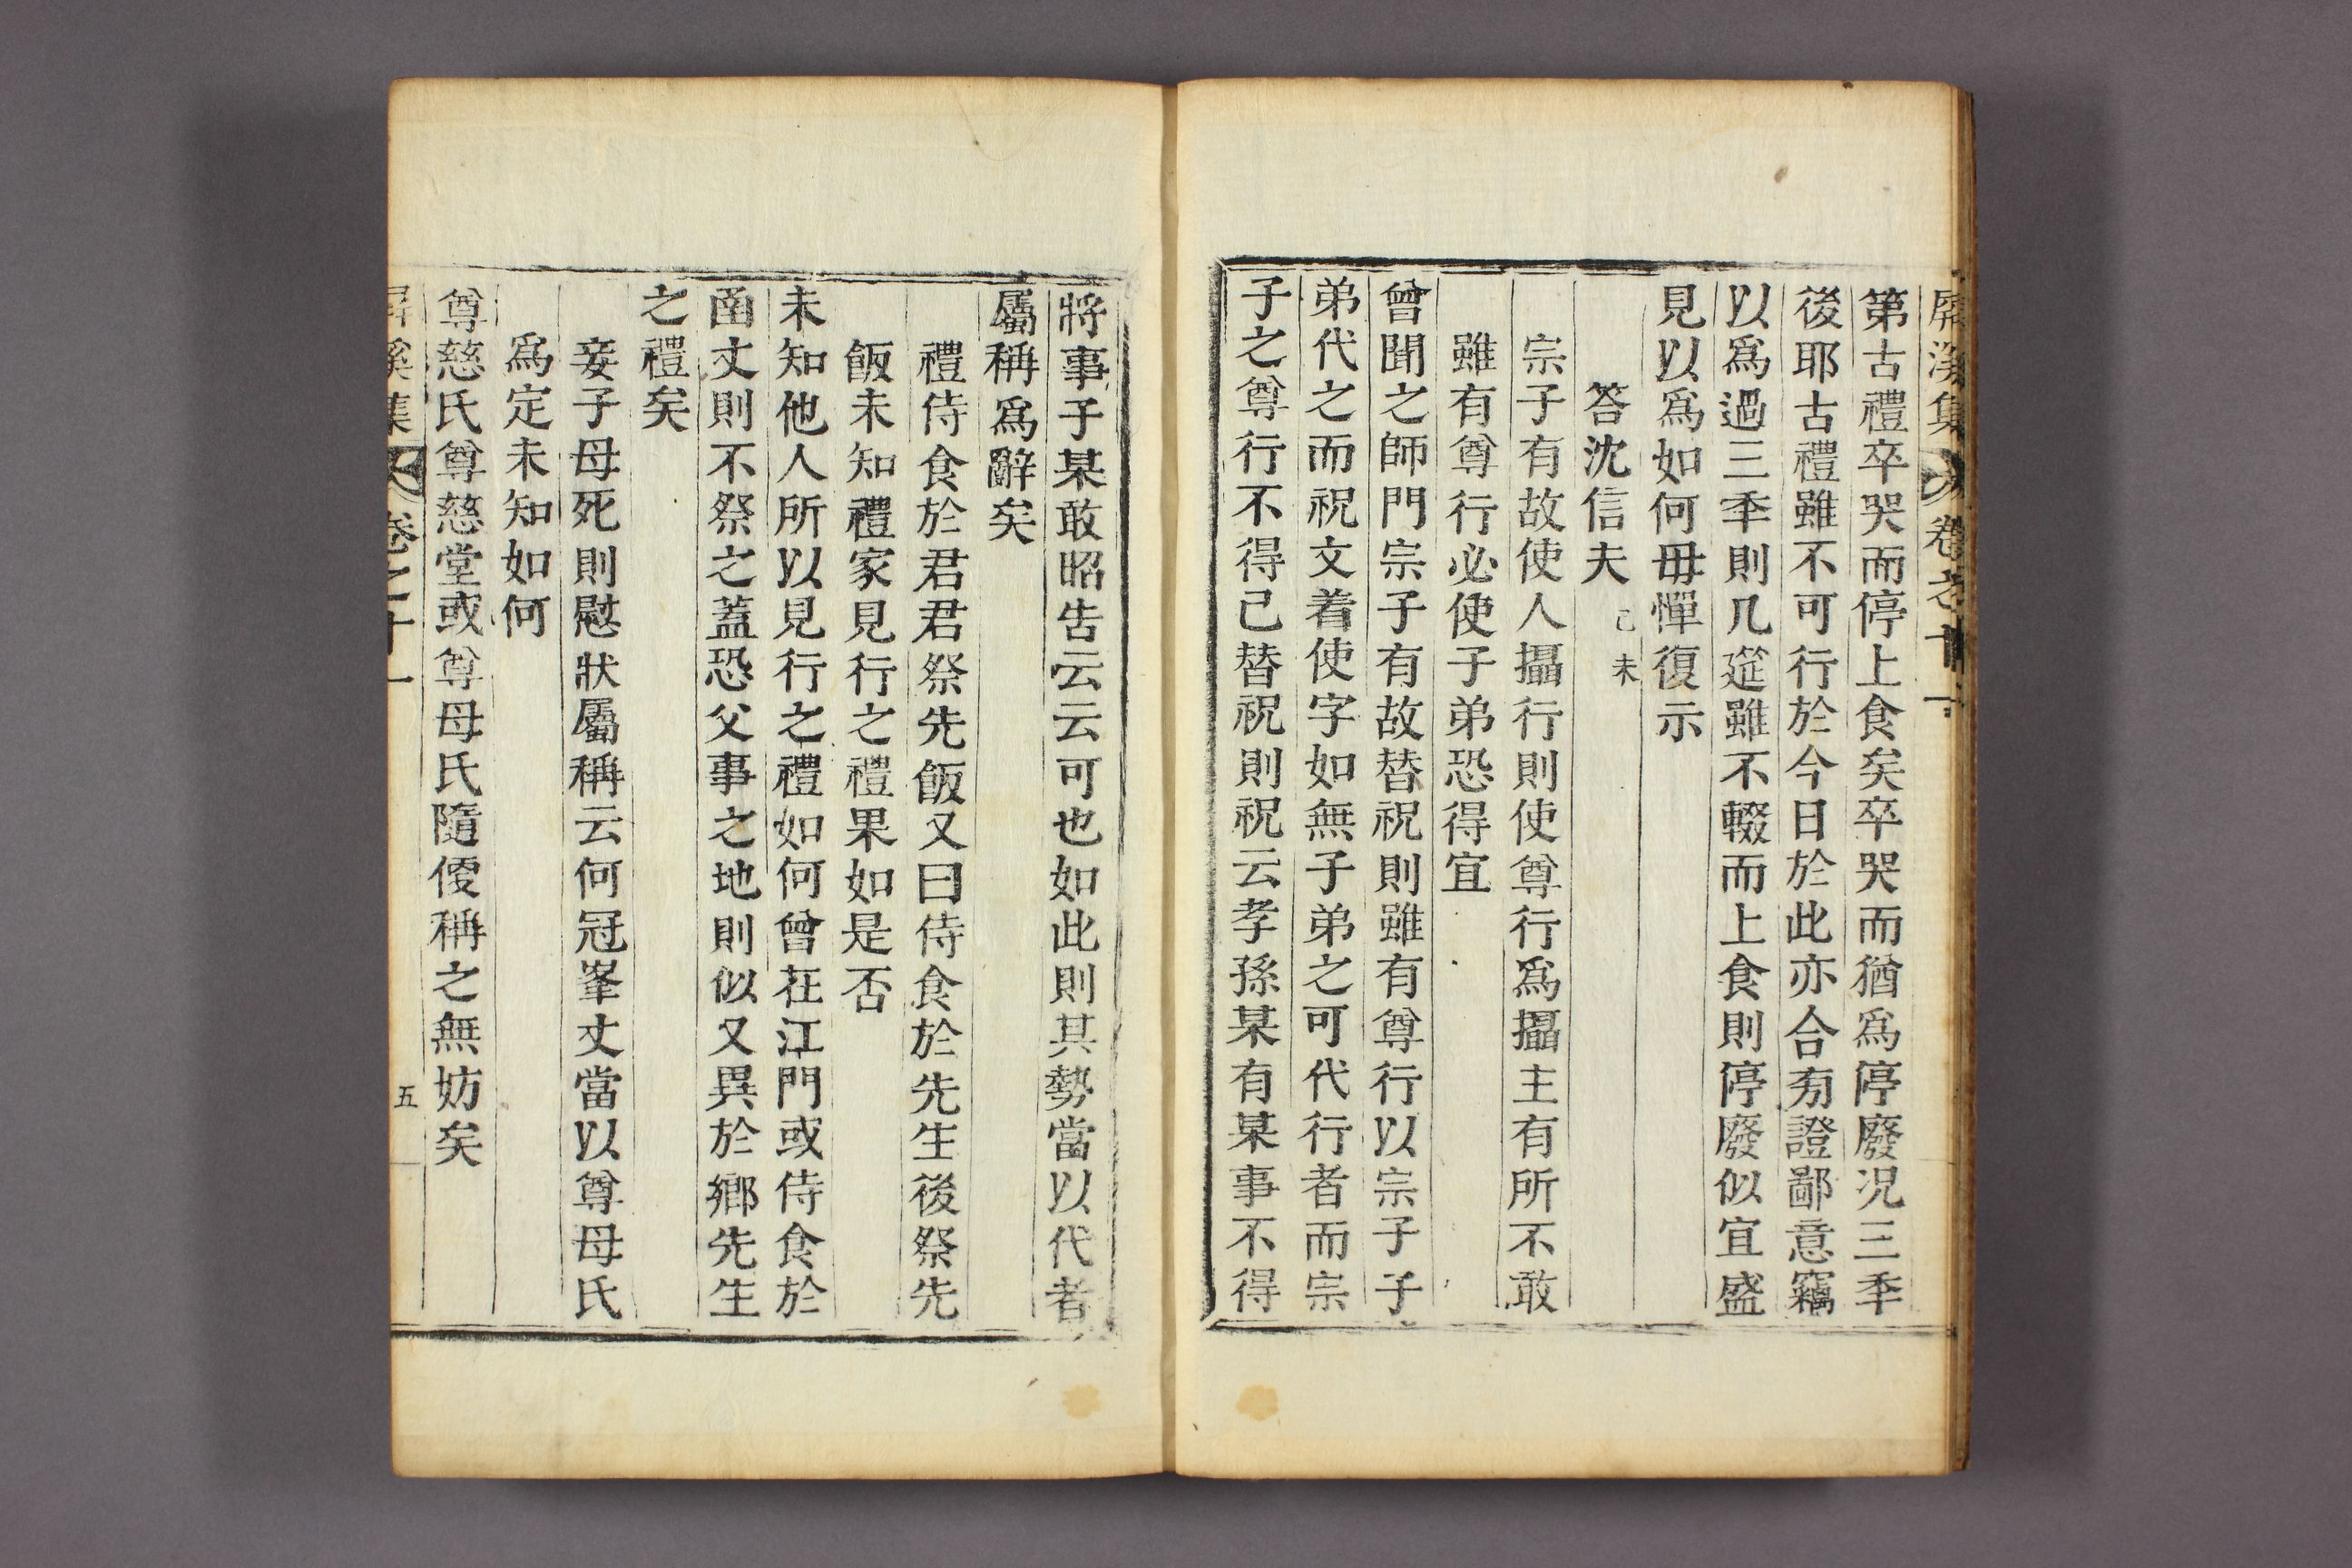 屛溪集 卷之十一
第古禮卒哭而停上食矣卒哭而猶爲停廢况三秊
後耶古禮雖不可行於今日於此亦合旁證鄙意竊
以爲過三秊則几筵雖不輟而上食則停廢似宜盛
見以爲如何毋憚復示
答沈信夫 己未
宗子有故使人攝行則使尊行爲攝主有所不敢
雖有尊行必使子弟恐得宜
曾聞之師門宗子有故替祝則雖有尊行以宗子子
弟代之而祝文着使字如無子弟之可代行者而宗
子之尊行不得已替祝則祝云孝孫某有某事不得
將事子某敢昭告云云可也如此則其勢當以代者
屬稱爲辭矣
禮侍食於君君祭先飯又曰侍食於先生後祭先
飯未知禮家見行之禮果如是否
未知他人所以見行之禮如何曾在江門或侍食於
凾丈則不祭之蓋恐父事之地則似又異於鄕先生
之禮矣
妾子母死則慰狀屬稱云何冠峯丈當以尊母氏
爲定未知如何
尊慈氏尊慈堂或尊母氏隨便稱之無妨矣
屛溪集 卷之十一
五